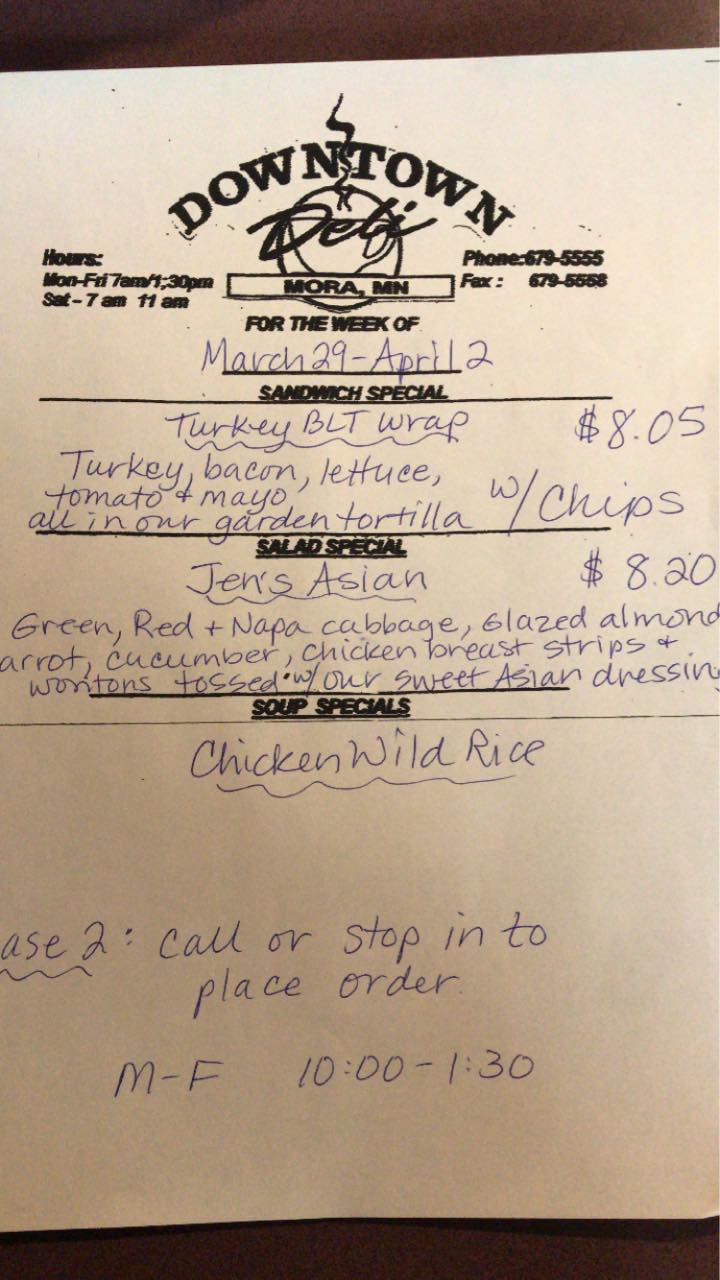 DOWNTOWN
Deli
Hours:
Mon-Fri 7am/1;30pm
Sat - 7 am 11 am
MORA, MN
Phone:679-5555
Fax : 679-5558
FOR THE WEEK OF
March 29 - April 2
SANDWICH SPECIAL
Turkey BLT Wrap $8.05
Turkey, bacon, lettuce,
tomato + mayo
all in our garden tortilla w/ Chips
SALAD SPECIAL
Jen's Asian $ 8.20
Green, Red + Napa cabbage, Glazed almond
arrot, cucumber, chicken breast strips +
wontons tossed w/ our sweet Asian dressing
SOUP SPECIALS
Chicken Wild Rice
ase 2: Call or stop in to
place order.
M-F 10:00-1:30